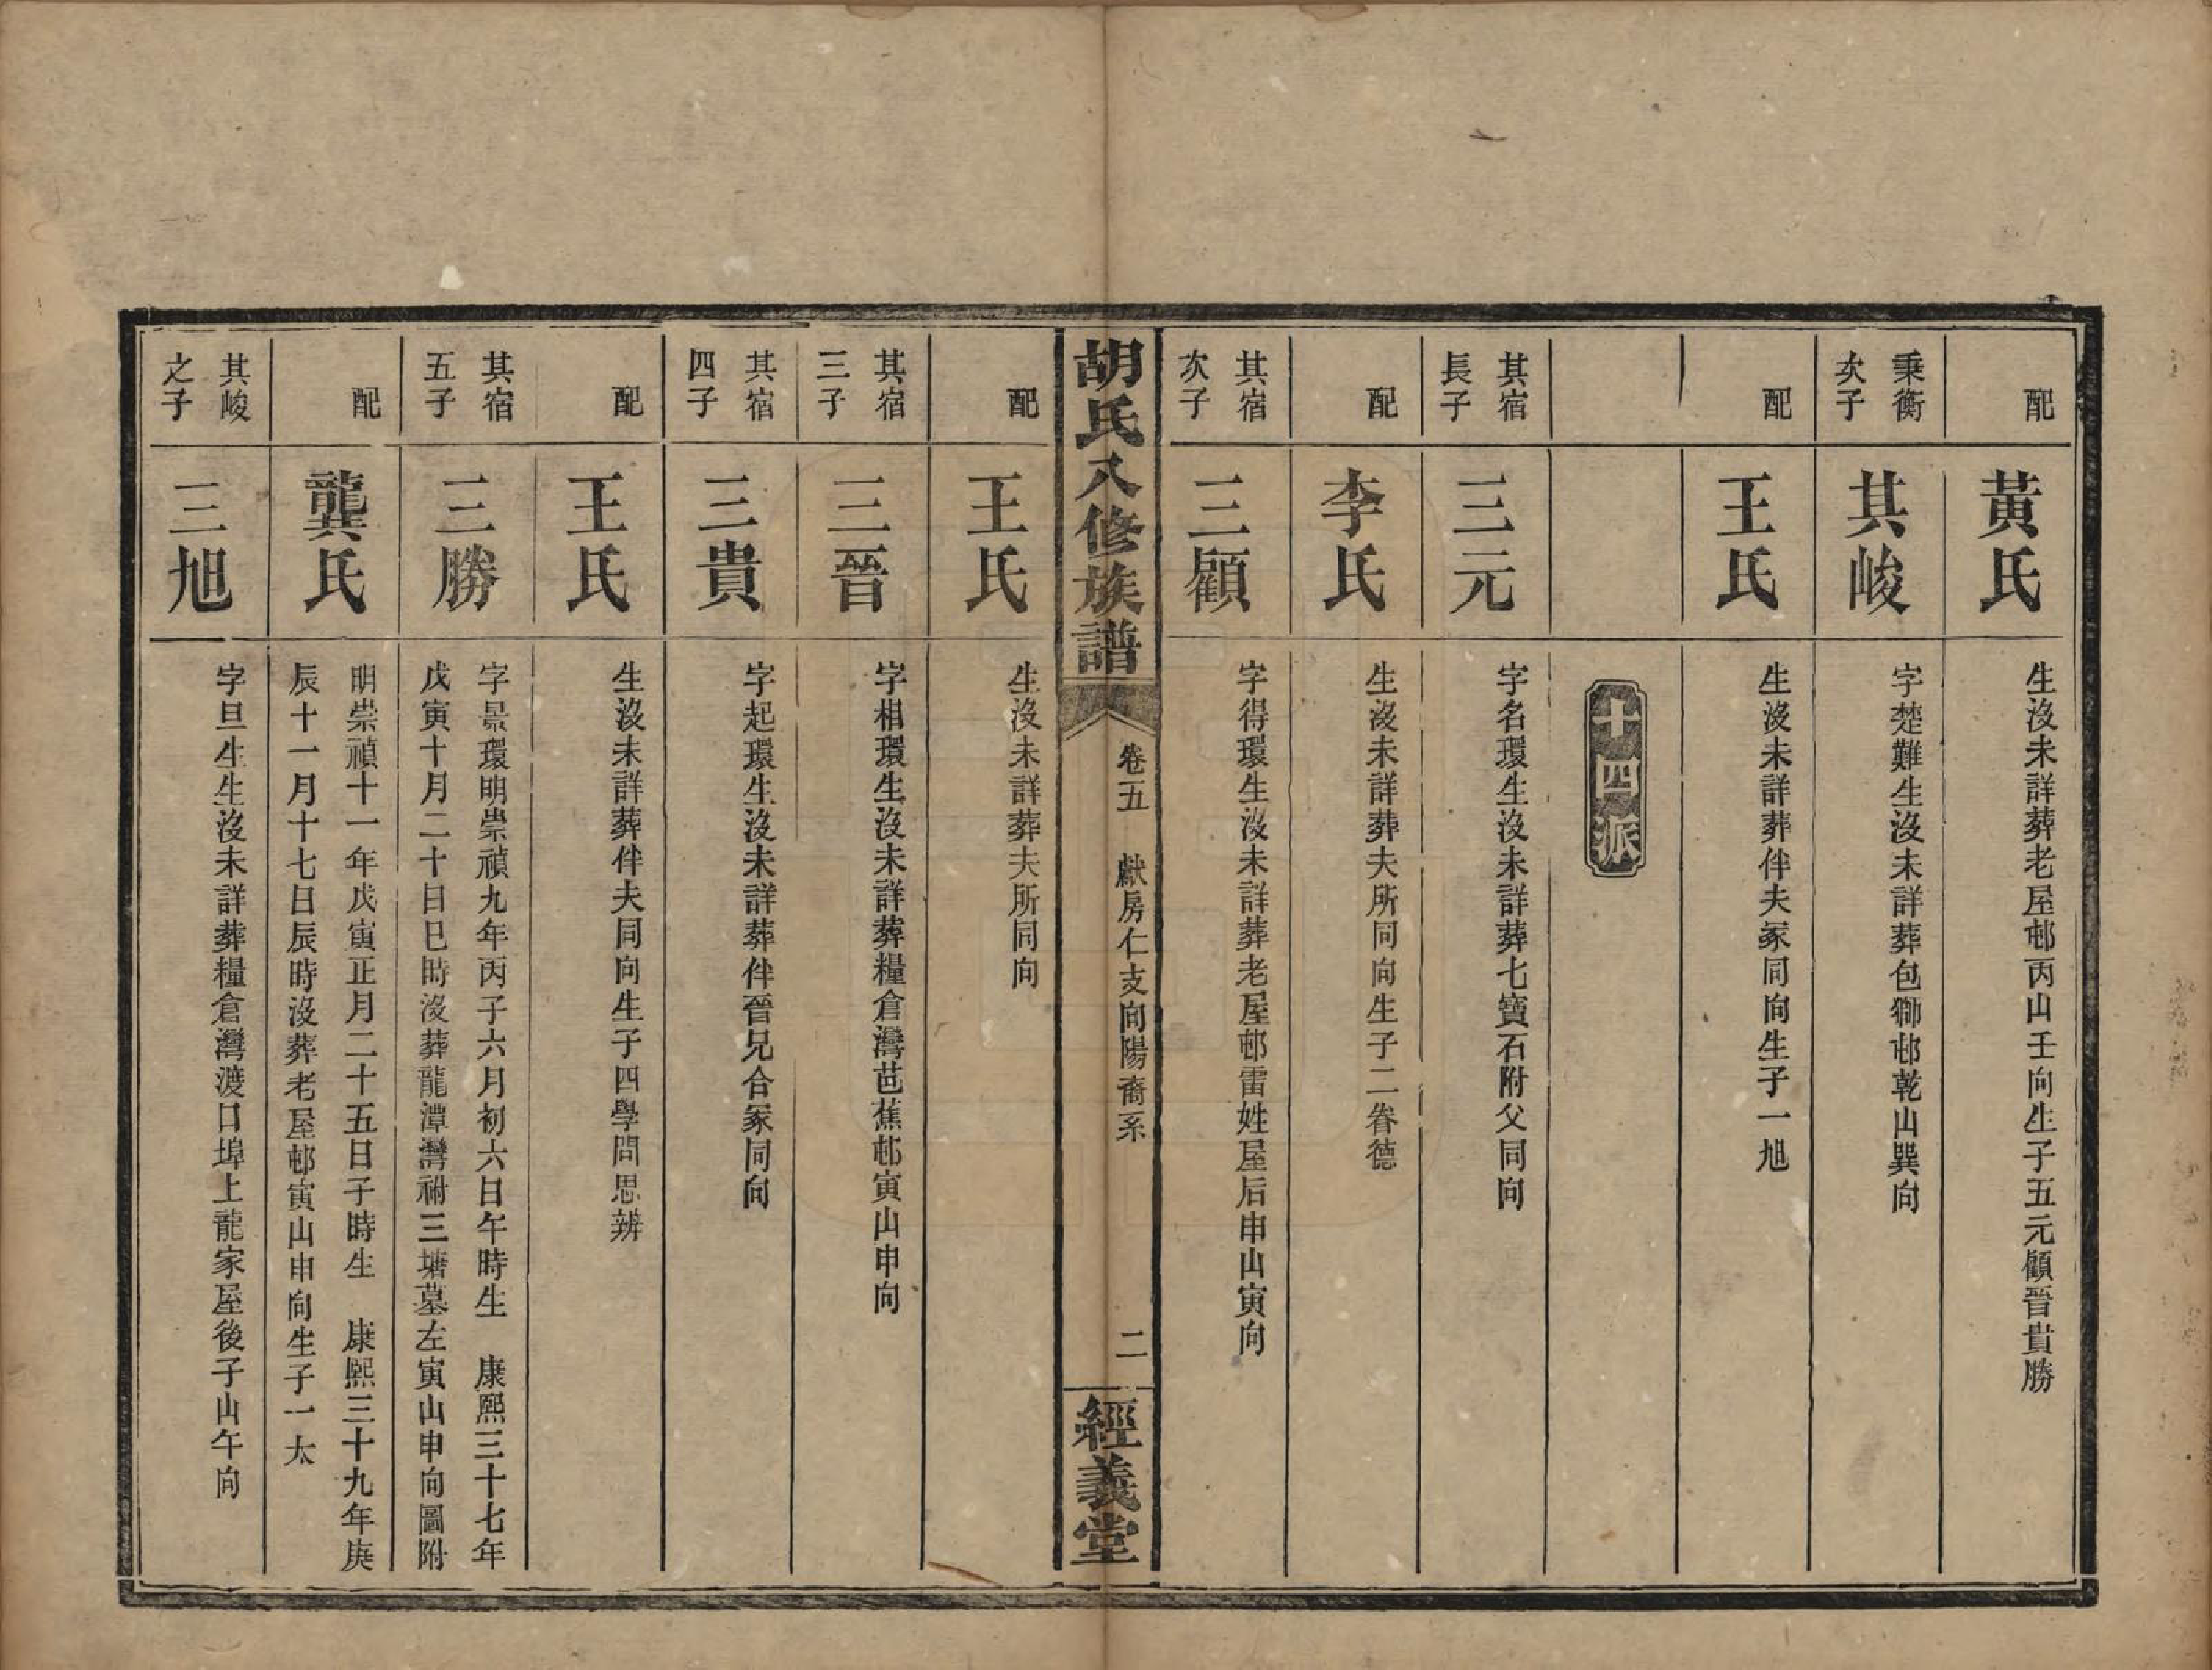 配
黃氏
生沒未詳葬老屋邨丙山壬向生子五元顧晉貴勝
秉衡
次子
其峻
字楚難生沒未詳葬包獅邨乾山巽向
配
王氏
生沒未詳葬伴夫冢同向生子一旭
十四派
其宿
長子
三元
字名環生沒未詳葬七寶石附父同向
配
李氏
生沒未詳葬夫所同向生子二眷德
其宿
次子
三顧
字得環生沒未詳葬老屋邨雷姓屋后申山寅向
胡氏八修族譜
卷五
獻房仁支向陽裔系
二
經義堂
配
王氏
生沒未詳葬夫所同向
其宿
三子
三晉
字相環生沒未詳葬糧倉灣芭蕉邨寅山申向
其宿
四子
三貴
字起環生沒未詳葬伴晉兄合冢同向
配
王氏
生沒未詳葬伴夫同向生子四學問思辨
其宿
五子
三勝
字景環明崇禎九年丙子六月初六日午時生 康熙三十七年
戊寅十月二十日巳時沒葬龍潭灣祔三塘墓左寅山申向圖附
配
龔氏
明崇禎十一年戊寅正月二十五日子時生 康熙三十九年庚
辰十一月十七日辰時沒葬老屋邨寅山申向生子一太
其峻
之子
三旭
字旦生生沒未詳葬糧倉灣渡口埠上龍家屋後子山午向